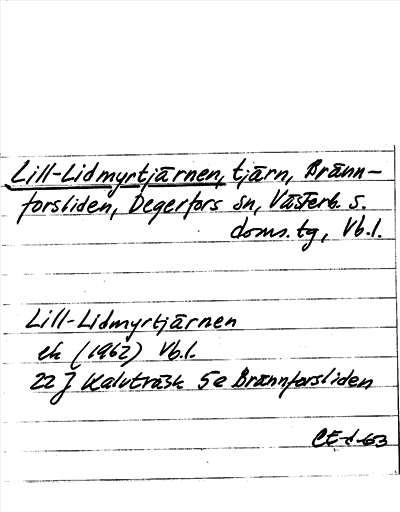 Lill-Lidmyrtjärnen, tjärn, Bränn-
forsliden, Degerfors sn, Västerb. s.
doms. tg, Vb.l.
Lill-Lidmyrtjärnen
ek (1962) Vb.l.
22 J Kalvträsk 5e Brännforsliden